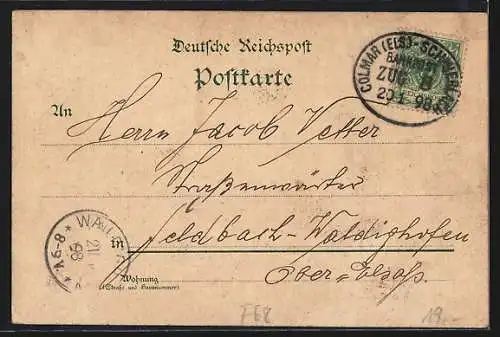 Deutsche Reichspost
Postkarte
COLMAR (ELS)-
BAHNPOST
ZUG 8
29 1 98
An Herrn Jacob Vetter
Straßenwärter
in Feldbach-Waldighofen
Ober-Elsass
Wohnung
(Straße und Hausnummer)
98
F68
19.-